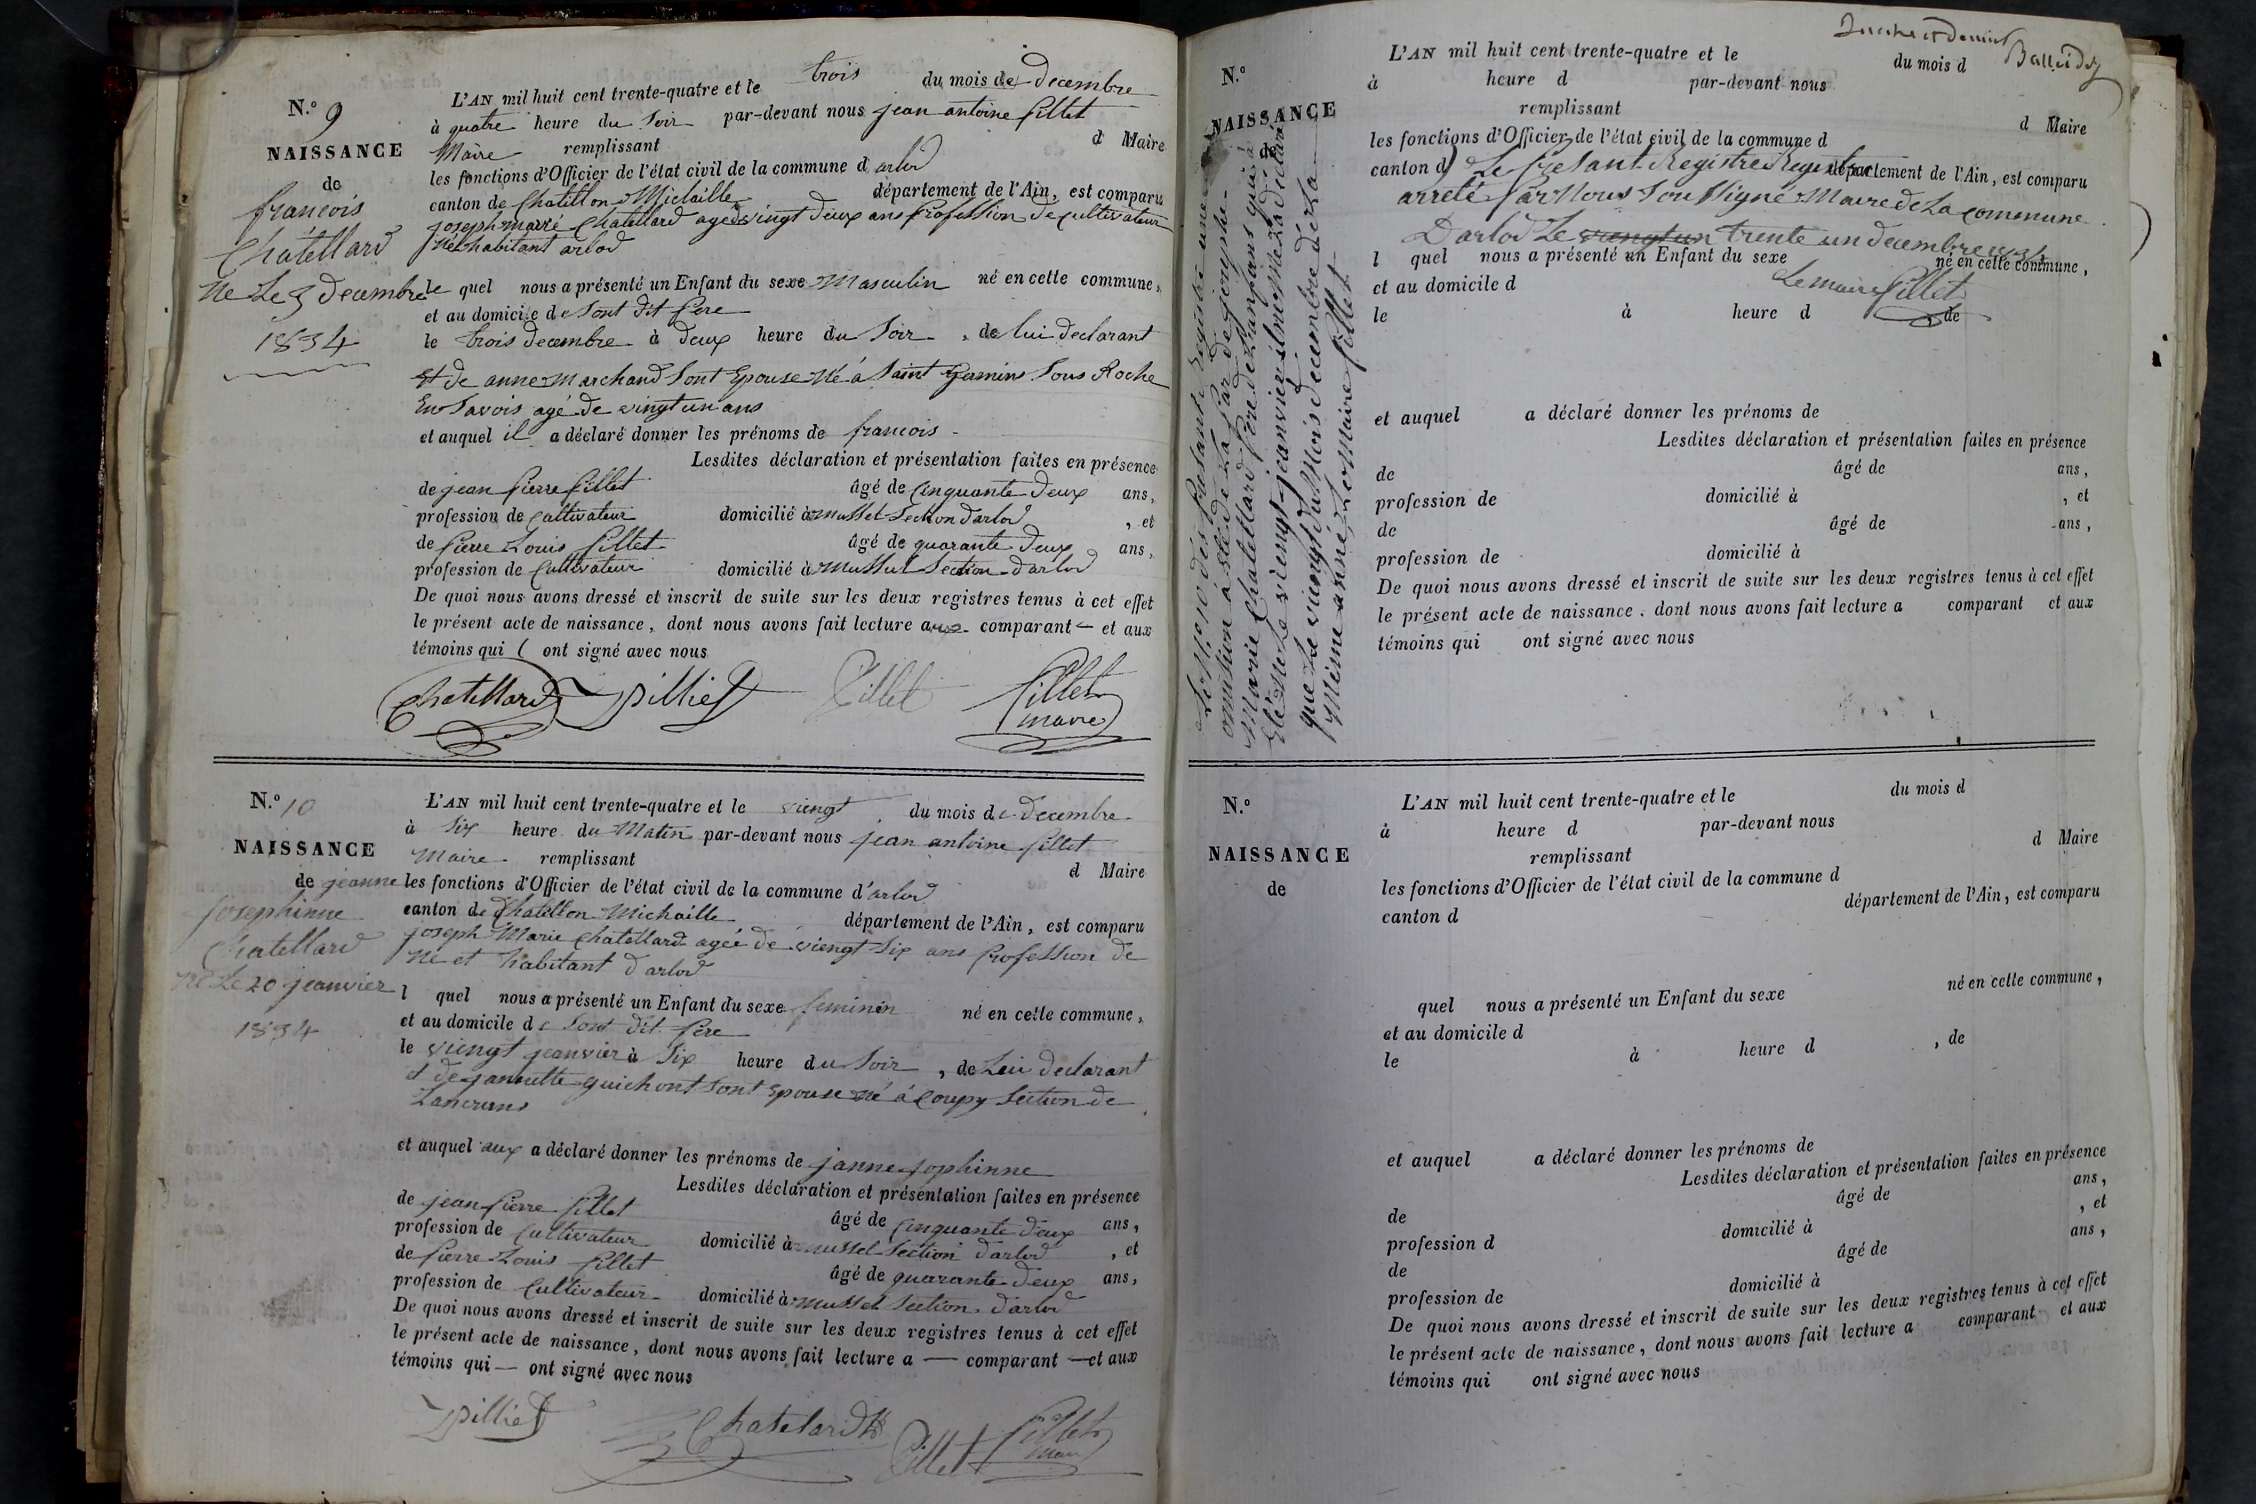 N.o 9
NAISSANCE
de
francois
Chatellard
né Le 3 decembre
1834
L'AN mil huit cent trente-quatre et le trois du mois de decembre
à quatre heure du soir par-devant nous jean antoine pillet
Maire remplissant d Maire
les fonctions d'Officier de l'état civil de la commune d arlod
canton de Chatillon Michaille département de l'Ain, est comparu
joseph marie Chatellard agé de vingt deux ans profession de cultivateur
né habitant arlod
le quel nous a présenté un Enfant du sexe Masculin né en cette commune,
et au domicile de sont dit pere
le trois decembre à deux heure du soir, de lui declarant
et de anne Marchand sont Epouse né à Saint Jermins sous Roche
En Savois agé de vingt un ans
et auquel il a déclaré donner les prénoms de francois
Lesdites déclaration et présentation faites en présence
de jean pierre pillet âgé de cinquante deux ans,
profession de cultivateur domicilié à mussel section d'arlod, et
de pierre Louis pillet âgé de quarante deux ans,
profession de cultivateur domicilié à mussel section d'arlod
De quoi nous avons dressé et inscrit de suite sur les deux registres tenus à cet effet
le présent acte de naissance, dont nous avons fait lecture aux comparant et aux
témoins qui ont signé avec nous
Chatellard pilliet Pillet Pillet
maire
N.o 10
NAISSANCE
de jeanne
josephinne
Chatellard
né Le 20 jeanvier
1834
L'AN mil huit cent trente-quatre et le viengt du mois de decembre
à six heure du Matin par-devant nous jean antoine pillet
Maire remplissant d Maire
les fonctions d'Officier de l'état civil de la commune d'arlod
canton de Chatillon Michaille département de l'Ain, est comparu
joseph Marie Chatellard agée de viengt six ans profession de
né et habitant d'arlod
l quel nous a présenté un Enfant du sexe feminin né en cette commune,
et au domicile de sont dit pere
le viengt jeanvier à six heure du soir, de Lui declarant
et de jannette guichont sont Epouse né à Coupy section de
Lancrans
et auquel aux a déclaré donner les prénoms de janne jophinne
Lesdites déclaration et présentation faites en présence
de jean pierre pillet âgé de cinquante deux ans,
profession de Cultivateur domicilié à mussel section d'arlod, et
de pierre Louis pillet âgé de quarante deux ans,
profession de Cultivateur domicilié à mussel section d'arlod
De quoi nous avons dressé et inscrit de suite sur les deux registres tenus à cet effet
le présent acte de naissance, dont nous avons fait lecture a — comparant — et aux
témoins qui — ont signé avec nous
pilliet Chatelard Pillet Pillet
maire
Ballridy
N.o
NAISSANCE
de
omition à été de la par de joseph
Marie Chatellard pere de l'anfans qui à
Eté né le viengt jeanvier il ne ma déclaré
que Le viengt du Mois decembre de La
Même année Le Maire Pillet
L'AN mil huit cent trente-quatre et le du mois d
à heure d par-devant nous
remplissant d Maire
les fonctions d'Officier de l'état civil de la commune d
canton d Le presant Registre département de l'Ain, est comparu
arreté par Nous Soussigné Maire de La commune
Darlod Le viengt un trente un decembre
l quel nous a présenté un Enfant du sexe né en cette commune,
et au domicile d Le maire Pillet
le à heure d, de
et auquel a déclaré donner les prénoms de
Lesdites déclaration et présentation faites en présence
de âgé de ans,
profession de domicilié à, et
de âgé de ans,
profession de domicilié à
De quoi nous avons dressé et inscrit de suite sur les deux registres tenus à cet effet
le présent acte de naissance, dont nous avons fait lecture a comparant et aux
témoins qui ont signé avec nous
N.o
NAISSANCE
de
L'AN mil huit cent trente-quatre et le du mois d
à heure d par-devant nous
remplissant d Maire
les fonctions d'Officier de l'état civil de la commune d
canton d département de l'Ain, est comparu
quel nous a présenté un Enfant du sexe né en cette commune,
et au domicile d
le à heure d, de
et auquel a déclaré donner les prénoms de
Lesdites déclaration et présentation faites en présence
de âgé de ans,
profession d domicilié à, et
de âgé de ans,
profession de domicilié à
De quoi nous avons dressé et inscrit de suite sur les deux registres tenus à cet effet
le présent acte de naissance, dont nous avons fait lecture a comparant et aux
témoins qui ont signé avec nous